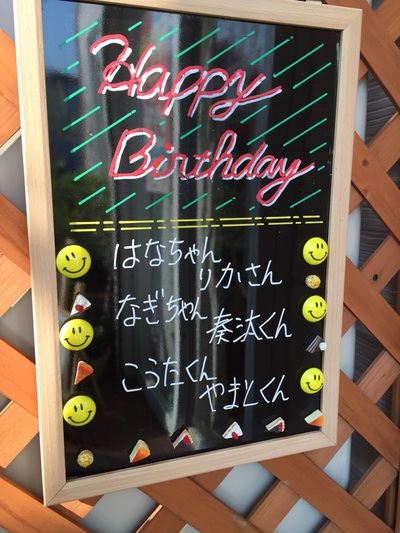 Happy
Birthday
はなちゃん
りかさん
なぎちゃん
奏汰くん
こうたくん
やまとくん